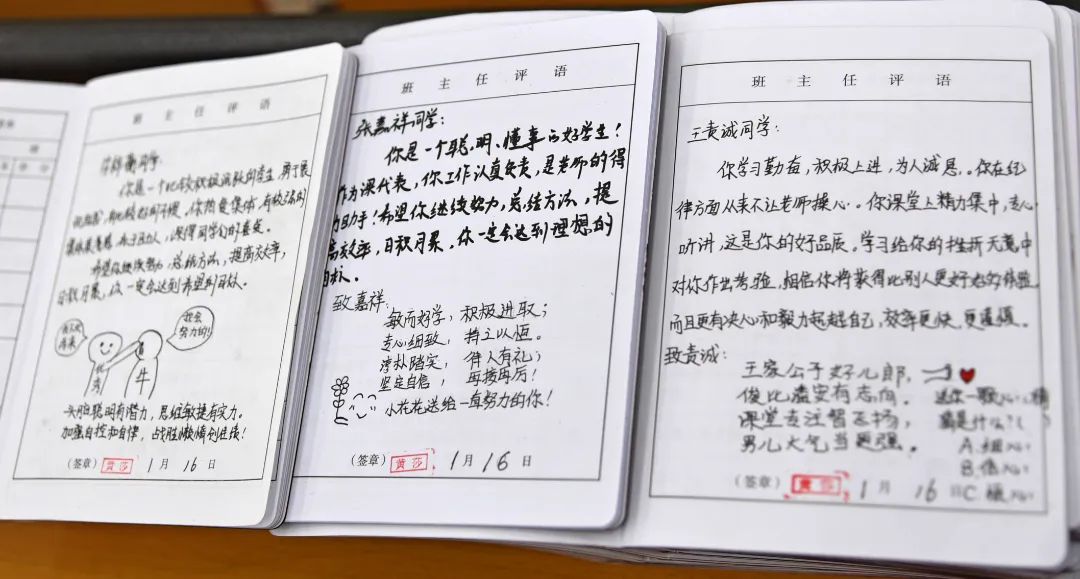 班主任评语
同学:
你是一个比较积极活跃的学生,勇于展
你热爱集体,有较强的
集体荣誉感,乐于助人,深得同学们的喜爱。
希望你继续努力,总结方法,提高效率,
日积月累,你一定会达到希望的目标。
我会努力的!
优秀
牛
头脑聪明有潜力,思维敏捷有实力。
加强自控和自律,战胜懒惰创佳绩!
(签章) 黄莎 1月16日
班主任评语
张嘉祥同学:
你是一个聪明、懂事的好学生!
作为课代表,你工作认真负责,是老师的得
力助手!希望你继续努力,总结方法,提
高效率,日积月累,你一定会达到理想的
目标。
致嘉祥:
敏而好学,积极进取;
专心细致,持之以恒。
淳朴踏实,待人有礼;
坚定自信,再接再厉!
小花花送给一直努力的你!
(签章) 黄莎 1月16日
班主任评语
王责诚同学:
你学习勤奋,积极上进,为人诚恳。你在纪
律方面从来不让老师操心。你课堂上精力集中,专心
听讲,这是你的好品质。学习给你的挫折无意中
对你作出考验,相信你将获得比别人更好的体验
而且更有决心和毅力超越自己,效率更快,更谨慎。
致责诚:
王家公子好儿郎,
俊比潘安有志向。
课堂专注智飞扬,
男儿大气当更强。
送你一颗心,猜
猜是什么?
A.细心
B.信心
C.
(签章) 黄莎 1月16日